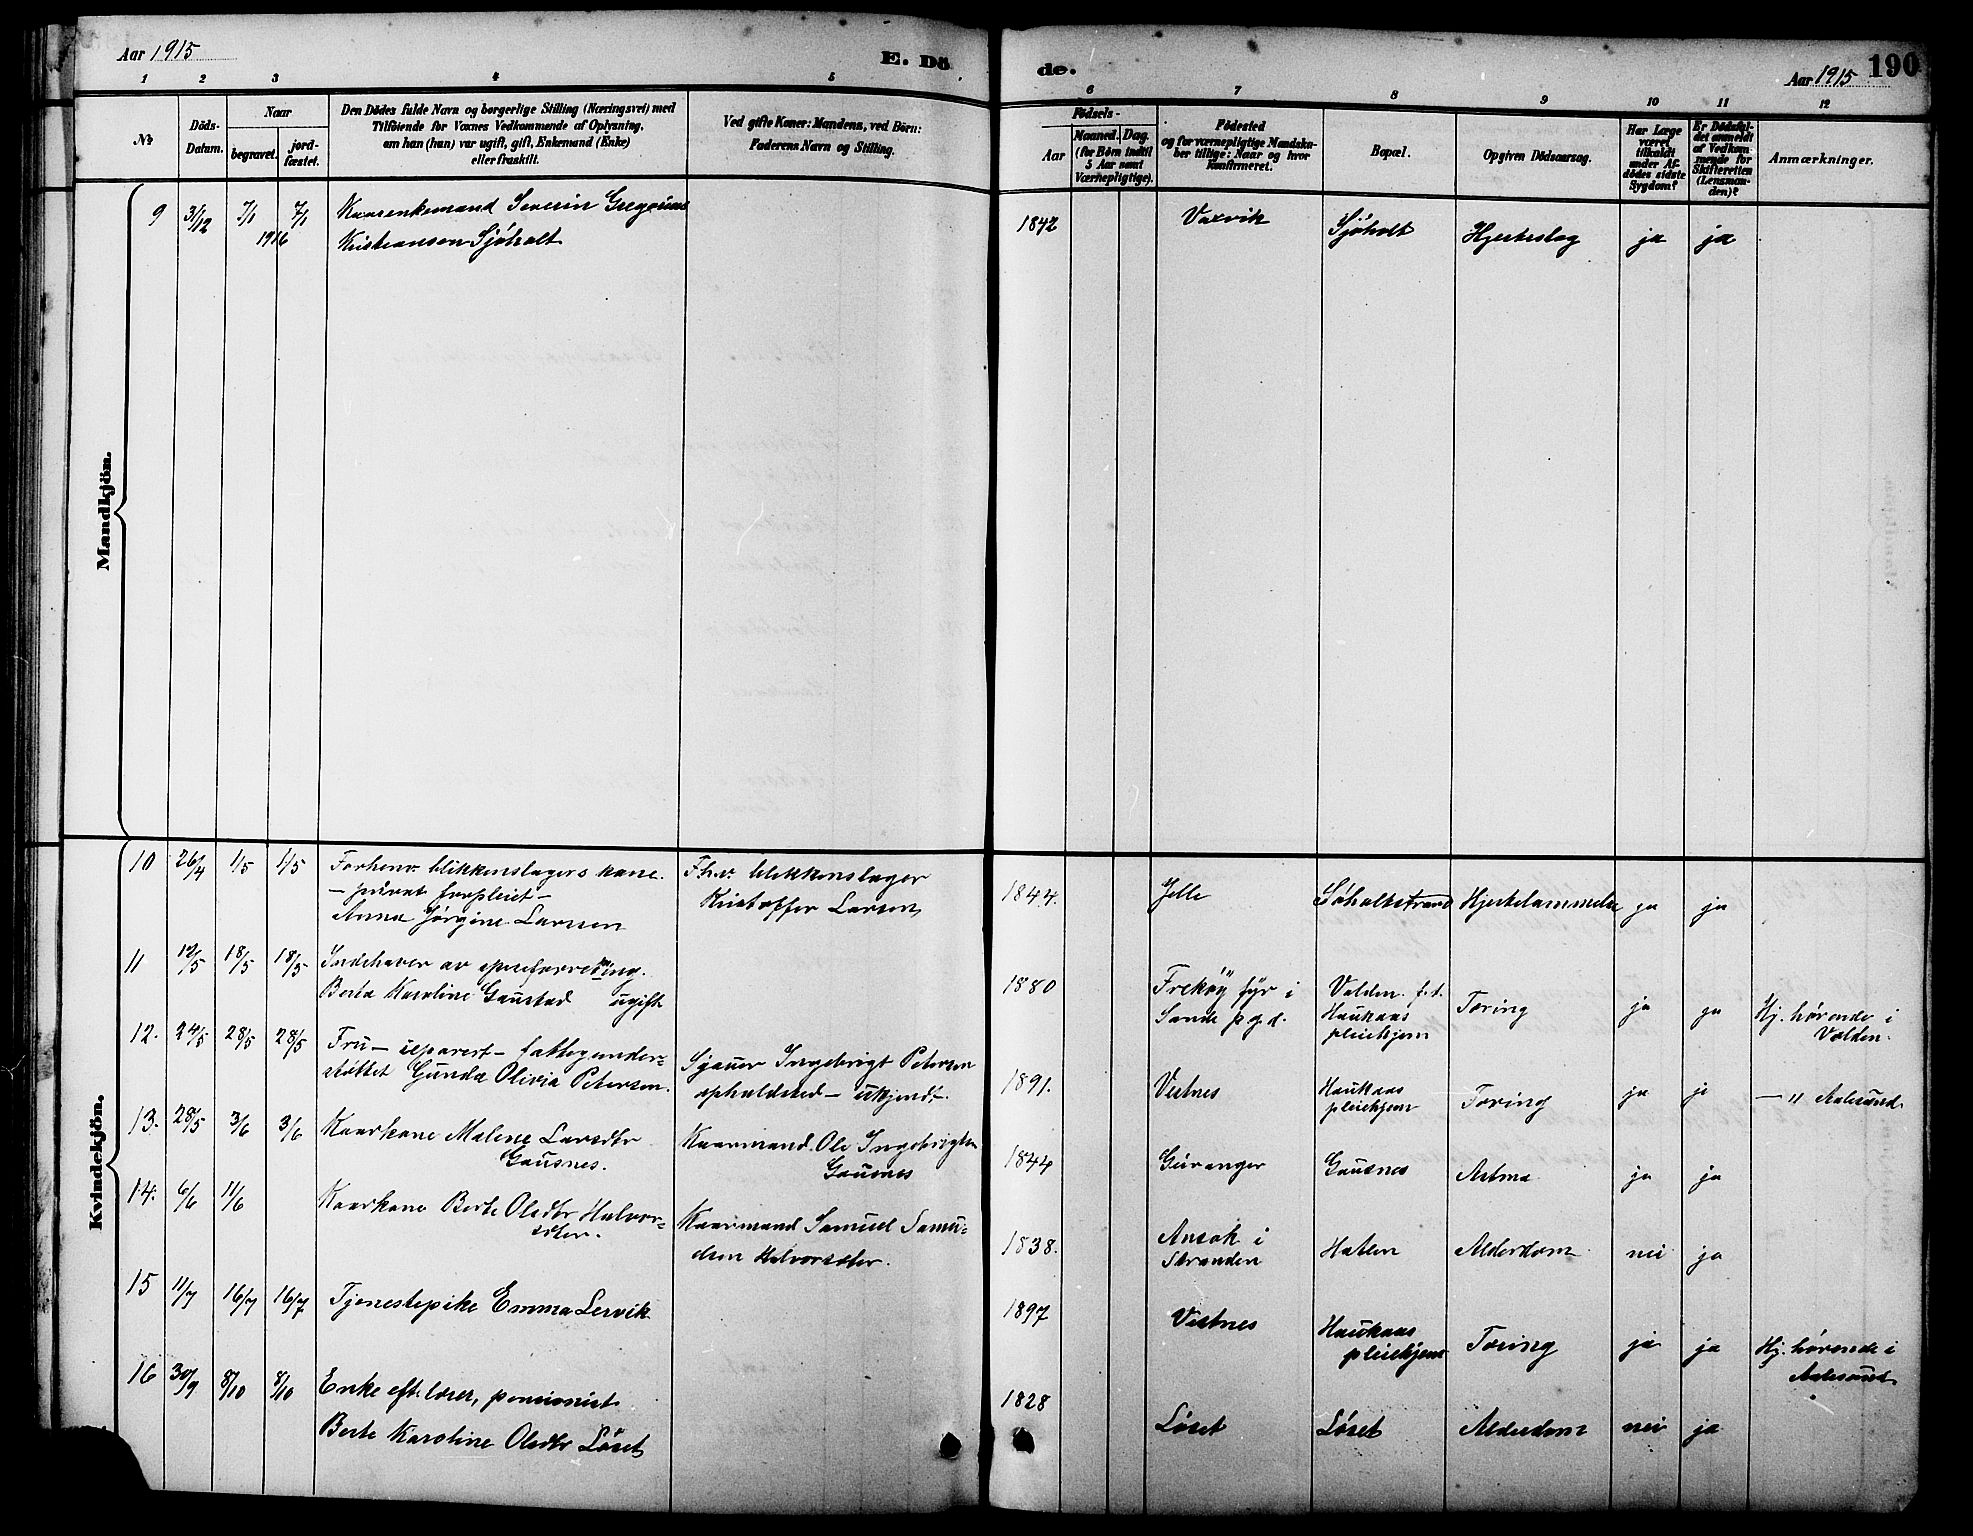 Aar 1915
E. Dö
de.
Aar 1915
190
1 2 3 4 5
6 7 8 9 10 11 12
№
Döds-
Datum.
Naar
begravet.
jord-
fæstet.
Den Dödes fulde Navn og borgerlige Stilling (Næringsvei) med
Tilföiende for Voxnes Vedkommende af Oplysning,
om han (hun) var ugift, gift, Enkemand (Enke)
eller fraskilt.
Ved gifte Koner: Mandens, ved Börn:
Faderens Navn og Stilling.
Födsels-
Aar
Maaned.
Dag.
(for Börn indtil
5 Aar samt
Værnepligtige).
Födested
og for værnepligtige Mandska-
ber tillige: Naar og hvor
konfirmeret.
Bopæl.
Opgiven Dödsaarsag.
Har Læge
været
tilkaldt
under Af-
dödes sidste
Sygdom?
Er Dödsfal-
det anmeldt
af Vedkom-
mende for
Skifteretten
(Lensman-
den)?
Anmærkninger.
Mandkjön.
9 31/12 7/1 7/1 Kaarenkemand Severin Gregorius
1916 Kristiansen Sjøholt
1842 Vaxvik Sjøholt Hjerteslag ja ja
Kvindekjön.
10 26/4 1/5 1/5 Forhenv. blikkenslagers kone
- privat forpleiet -
Anna Jørgine Larsen
Fhv. blikkenslager
Kristoffer Larsen
1844. Jelle Søholtstrand Hjertelammelse ja ja
11 12/5 18/5 18/5 Indehaver av
Berta Karoline Gaustad ugift
1880 Frekøy fyr i
Sande pgd.
Volden f.t.
Haukaas
pleiehjem
Tæring ja ja Hj. hørende i
Volden.
12. 24/5 28/5 28/5 Fru - separert - fattigunder-
støttet Gunda Olivia Petersen.
Sjauer Ingebrigt Petersen
opholdsted - ukjendt.
1891. Vestnes Haukaas
pleiehjem Tæring ja ja - " Aalesund
13. 28/5 3/6 3/6 Kaarkone Malene Larsdtr
Gausnes.
Kaarmand Ole Ingebrigtsen
Gausnes
1844 Geiranger Gausnes Astma ja ja
14. 6/6 11/6 Kaarkone Berte Olsdtr Halvor-
sæter.
Kaarmand Samuel Samu-
elsen Halvorsæter.
1838. Ansok i
Stranden Hatlen Alderdom nei ja
15 11/7 16/7 16/7 Tjenestepike Emma Lervik
1897 Vestnes Haukaas
pleiehjem Tæring ja ja Hj. hørende i
Aalesund
16 30/9 8/10 8/10 Enke eft. lærer, pensionist
Berte Karoline Olsdtr Løset
1828 Løset Løset Alderdom nei ja